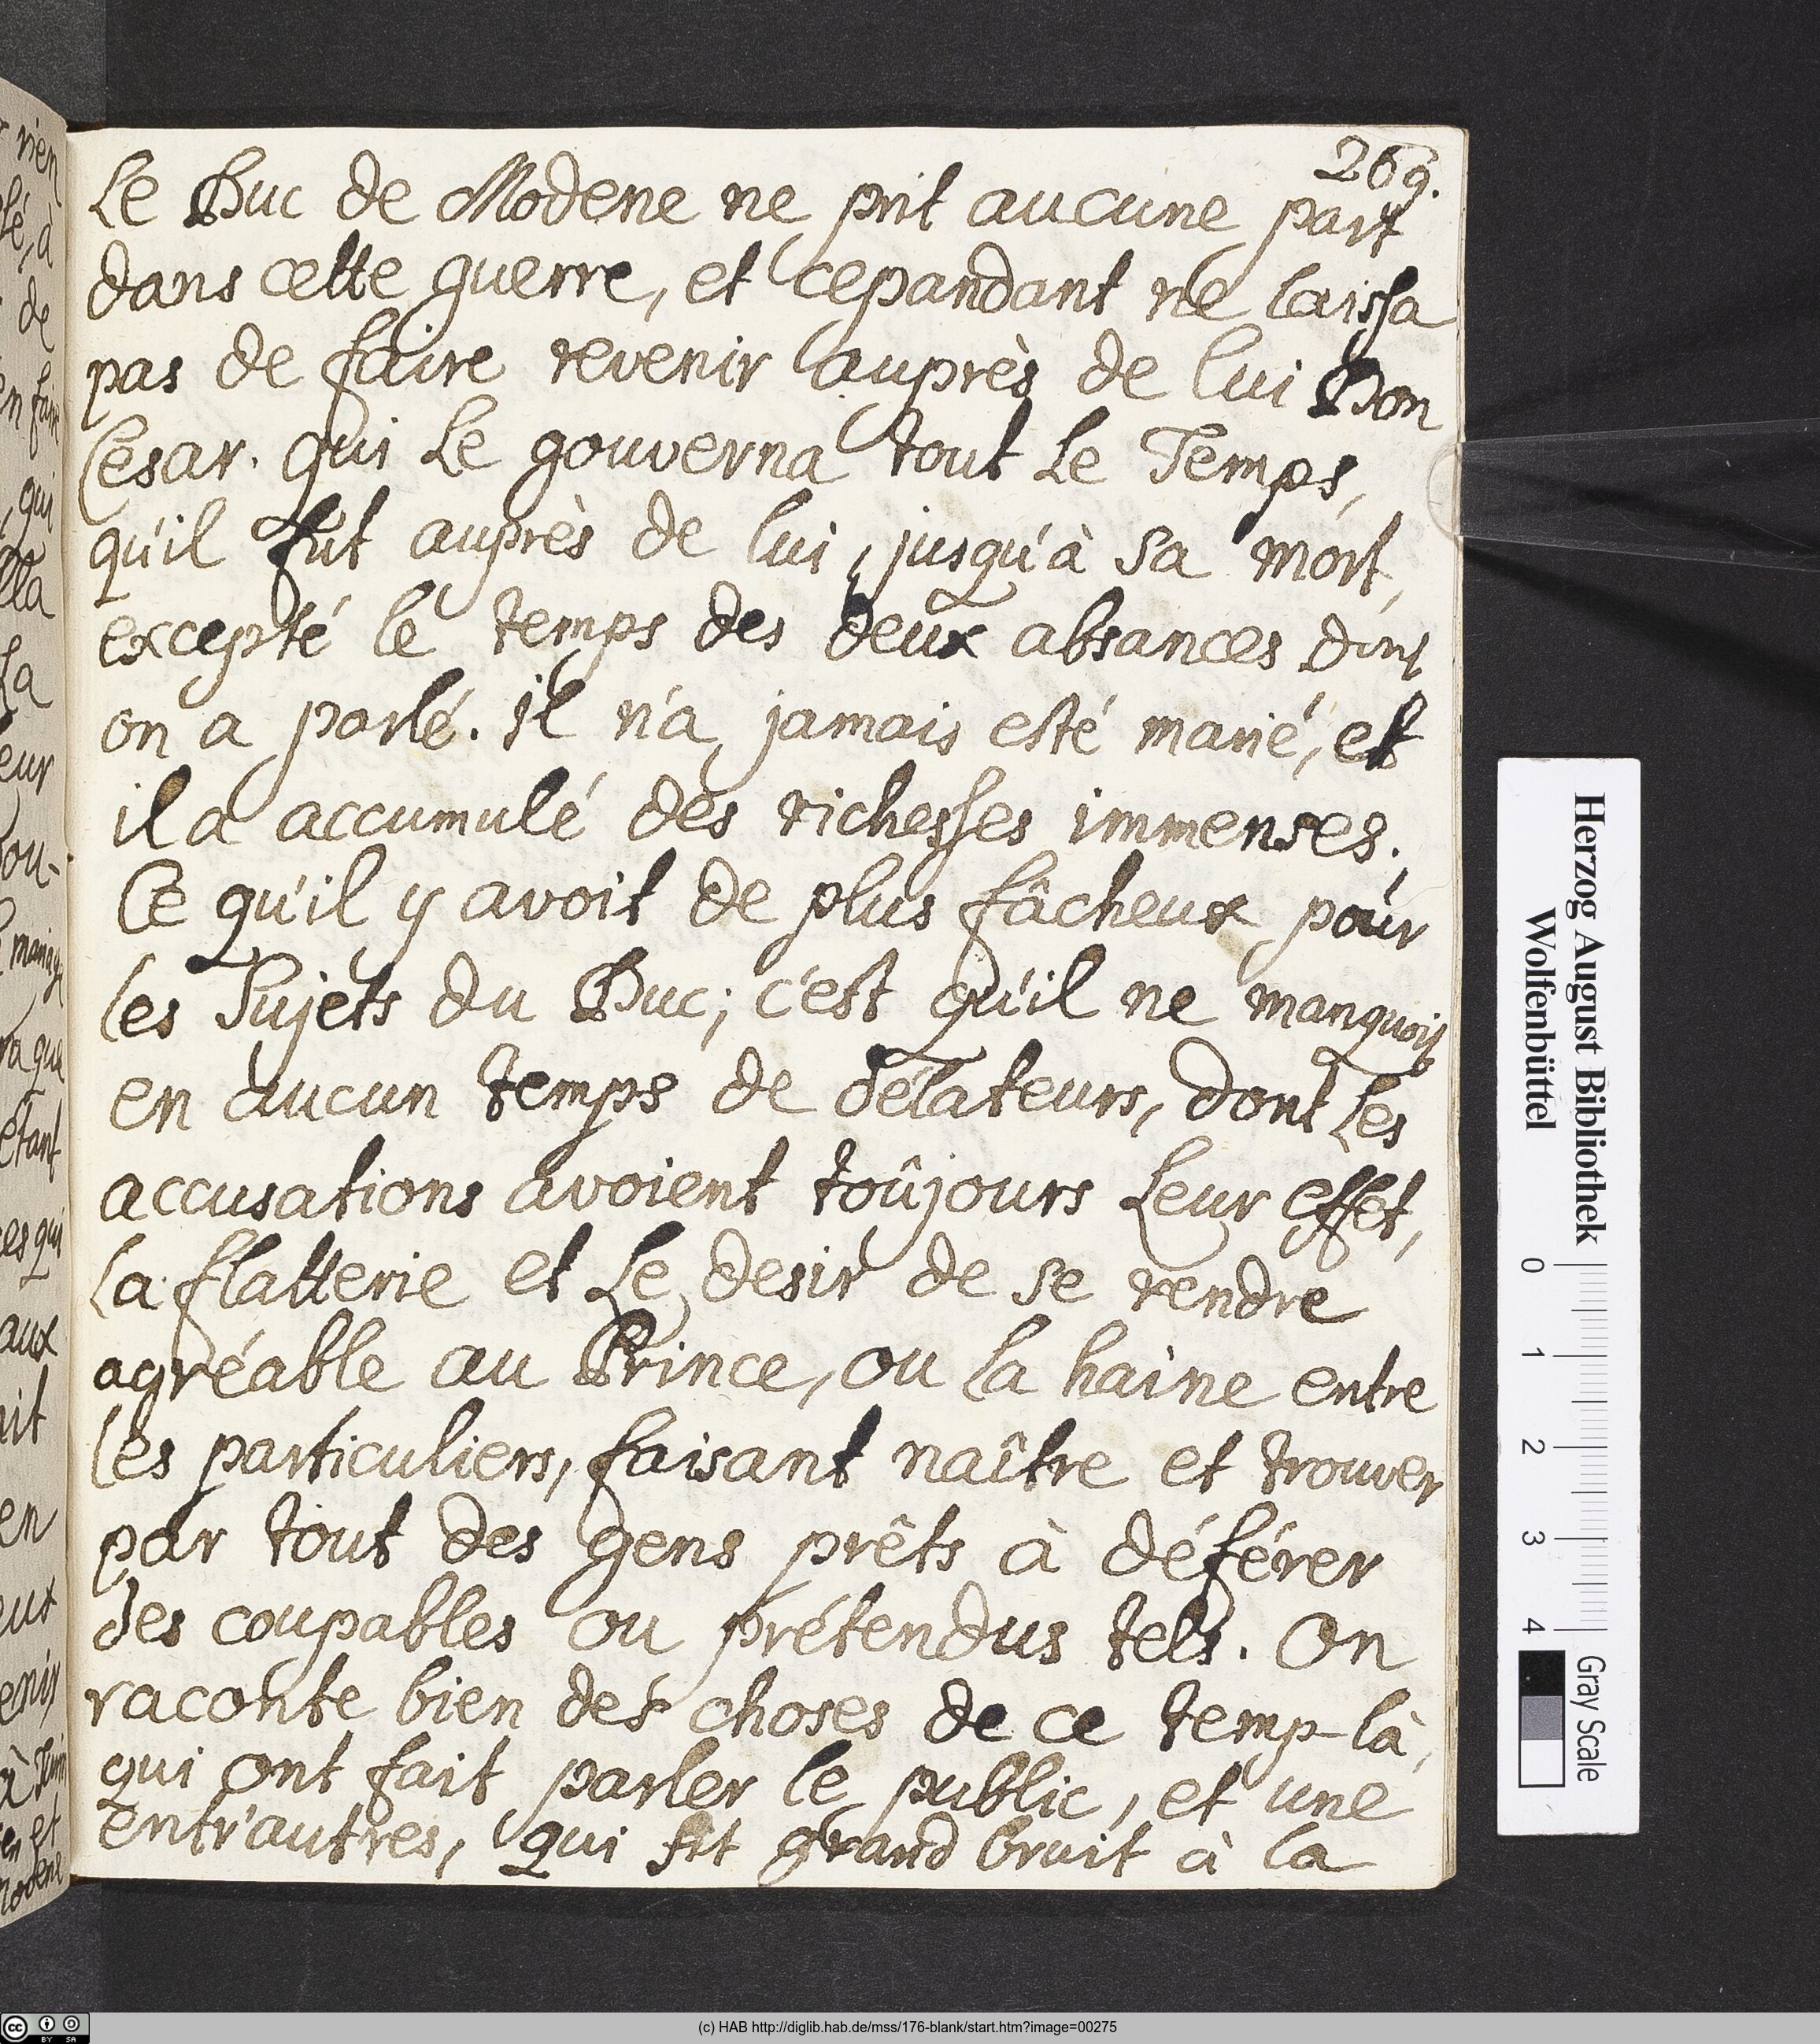 269.
Le Duc de Modene ne prit aucune part
dans cette guerre, et cepandant ne laissa
pas de faire revenir auprès de lui Don
Cesar. qui Le gouverna tout Le Temps,
qu'il fut auprès de lui, jusqu'à sa mort,
excepté le temps des deux absances dont
on a parlé. il n'a jamais esté marié, et
il a accumulé des richesses immenses.
Ce qu'il y avoit de plus fâcheux pour
les Sujets du Duc; c'est qu'il ne manquoit
en aucun temps de délateurs, dont Les
accusations avoient toûjours Leur effet,
La flatterie et Le desir de se rendre
agréable au Prince, ou la haine entre
les particuliers, faisant naître et trouver
par tout des gens prêts à déférer
des coupables ou prétendus tels. On
raconte bien des choses de ce temp-là,
qui ont fait parler le public, et une
entr'autres, qui fit grand bruit à la
rien
de
qui
la
eur
ou-
étant
aux
en
et
Herzog August Bibliothek
Wolfenbüttel
0 1 2 3 4
Gray Scale
cc BY SA
(c) HAB http://diglib.hab.de/mss/176-blank/start.htm?image=00275